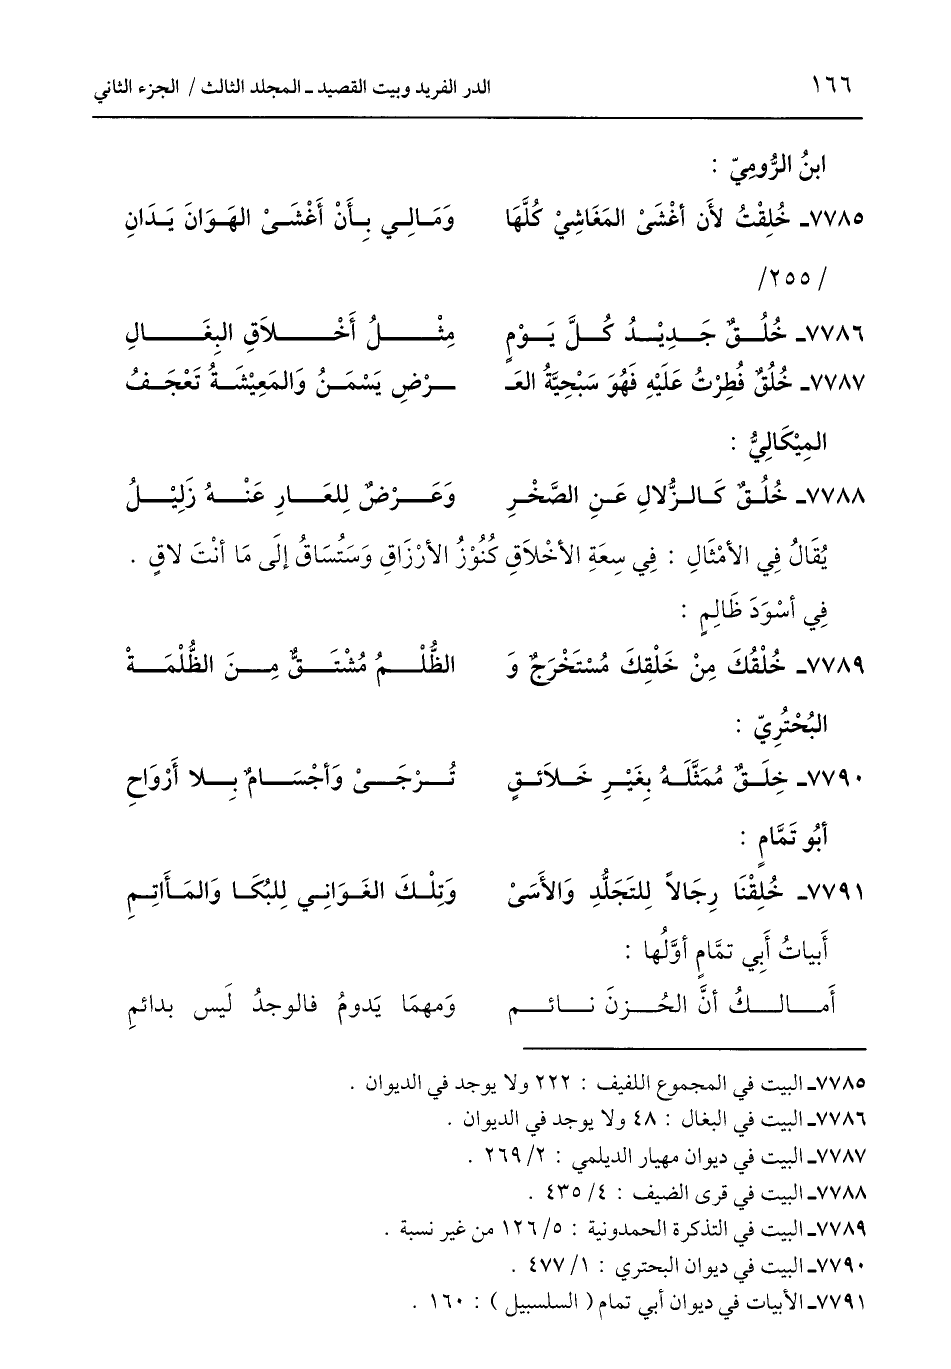 ١٦٦ الدر الفريد وبيت القصيد ـ المجلد الثالث / الجزء الثاني
ابنُ الرُّومِيّ :
٧٧٨٥ـ خُلِقْتُ لأَن أغْشَىْ المَغَاشِيْ كُلَّهَا وَمَـالِـي بِـأَنْ أَغْشَـىْ الهَـوَانَ يَـدَانِ
/ ٢٥٥/
٧٧٨٦ـ خُلُـقٌ جَـدِيْـدُ كُـلَّ يَـوْمٍ مِثْـلُ أَخْـلَاقِ البِغَـالِ
٧٧٨٧ـ خُلُقٌ فُطِرْتُ عَلَيْهِ فَهُوَ سَبْحِيَّةُ العَـ ـرْضِ يَسْمَـنُ وَالمَعِيْشَـةُ تَعْجَـفُ
المِيْكَالِيُّ :
٧٧٨٨ـ خُلُـقٌ كَـالـزُّلالِ عَـنِ الصَّخْـرِ وَعَـرْضٌ لِلعَـارِ عَنْـهُ زَلِيْـلُ
يُقَالُ فِي الأمْثَالِ : فِي سِعَةِ الأخْلَاقِ كُنُوْزُ الأرْزَاقِ وَسَتُسَاقُ إلَى مَا أنْتَ لاقٍ .
فِي أسْوَدَ ظَالِمٍ :
٧٧٨٩ـ خُلْقُكَ مِنْ خَلْقِكَ مُسْتَخرَجٌ وَ الظُّلْـمُ مُشْتَـقٌّ مِـنَ الظُّلْمَـةْ
البُحْتُرِيّ :
٧٧٩٠ـ خِلَـقٌ مُمَثَّلَـهُ بِغَيْـرِ خَـلائـقٍ تُـرْجَـىْ وَأجْسَـامٌ بِـلا أَرْوَاحِ
أبُو تَمَّامٍ :
٧٧٩١ـ خُلِقْنَا رِجَالاً لِلتَجَلُّدِ وَالأَسَىْ وَتِلْـكَ الغَـوَانِـي لِلبُكَـا وَالمَـأَاتِـمِ
أَبياتُ أَبِي تمَّامٍ أوَّلُها :
أَمـالـكُ أنَّ الحُـزنَ نـائـم وَمهمَا يَدومُ فالوجدُ لَيس بدائمِ
٧٧٨٥ـ البيت في المجموع اللفيف : ٢٢٢ ولا يوجد في الديوان .
٧٧٨٦ـ البيت في البغال : ٤٨ ولا يوجد في الديوان .
٧٧٨٧ـ البيت في ديوان مهيار الديلمي : ٢/ ٢٦٩ .
٧٧٨٨ـ البيت في قرى الضيف : ٤/ ٤٣٥ .
٧٧٨٩ـ البيت في التذكرة الحمدونية : ٥/ ١٢٦ من غير نسبة .
٧٧٩٠ـ البيت في ديوان البحتري : ١/ ٤٧٧ .
٧٧٩١ـ الأبيات في ديوان أبي تمام ( السلسبيل ) : ١٦٠ .